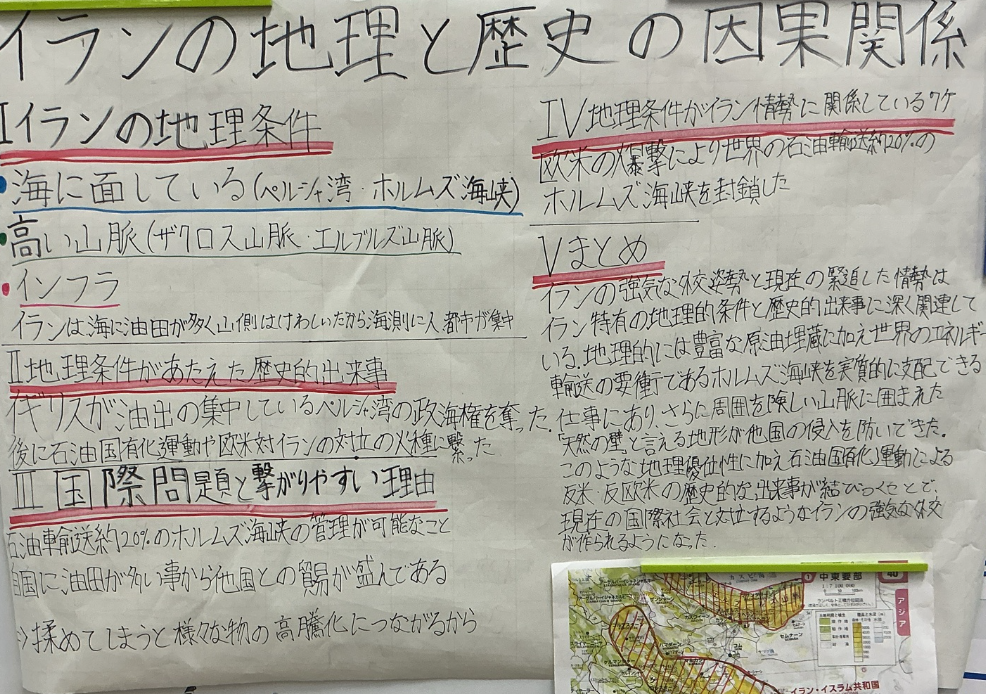 イランの地理と歴史の因果関係
Iイランの地理条件
・海に面している(ペルシャ湾・ホルムズ海峡)
・高い山脈(ザグロス山脈・エルブルズ山脈)
・インフラ
イランは海に油田が多く山側はけわしいだから海側に人、都市が集中
II地理条件があたえた歴史的出来事
イギリスが油田の集中しているペルシャ湾の政海権を奪った。
後に石油国有化運動や欧米対イランの対立の火種に繋った
III国際問題と繋がりやすい理由
石油輸送約20%のホルムズ海峡の管理が可能なこと
自国に油田が多い事から他国との貿易が盛んである
⇒揉めてしまうと様々な物の高騰化につながるから
IV地理条件がイラン情勢に関係しているワケ
欧米の爆撃により世界の石油輸送約20%の
ホルムズ海峡を封鎖した
Vまとめ
イランの強気な外交姿勢と現在の緊迫した情勢は
イラン特有の地理的条件と歴史的出来事に深く関連して
いる。地理的には豊富な原油埋蔵に加え世界のエネルギー
輸送の要衝であるホルムズ海峡を実質的に支配できる
仕事にあり、さらに周囲を険しい山脈に囲まれた
「天然の壁」と言える地形が他国の侵入を防いできた。
このような地理優位性に加え石油国有化運動による
反米・反欧米の歴史的な出来事が結びつくことで、
現在の国際社会と対立するようなイランの強気な外交
が作られるようになった。
中東要部
40
アジア
イラン・イスラム共和国